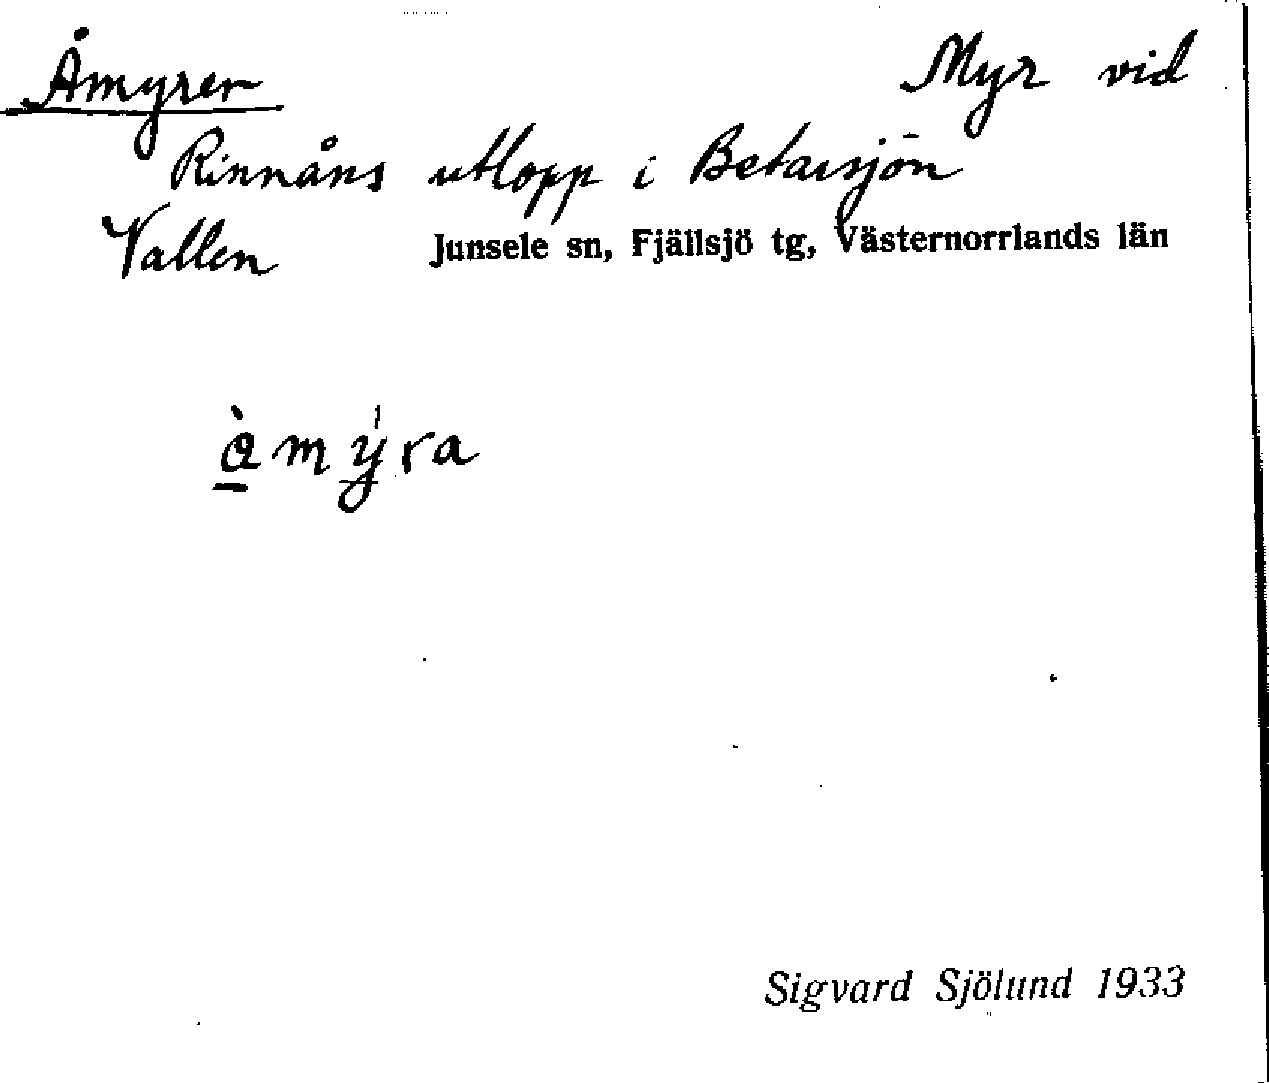 Åmyren Myr vid
Rinnåns utlopp i Betarsjön
Vallen Junsele sn, Fjällsjö tg, Västernorrlands län
Sigvard Sjölund 1933